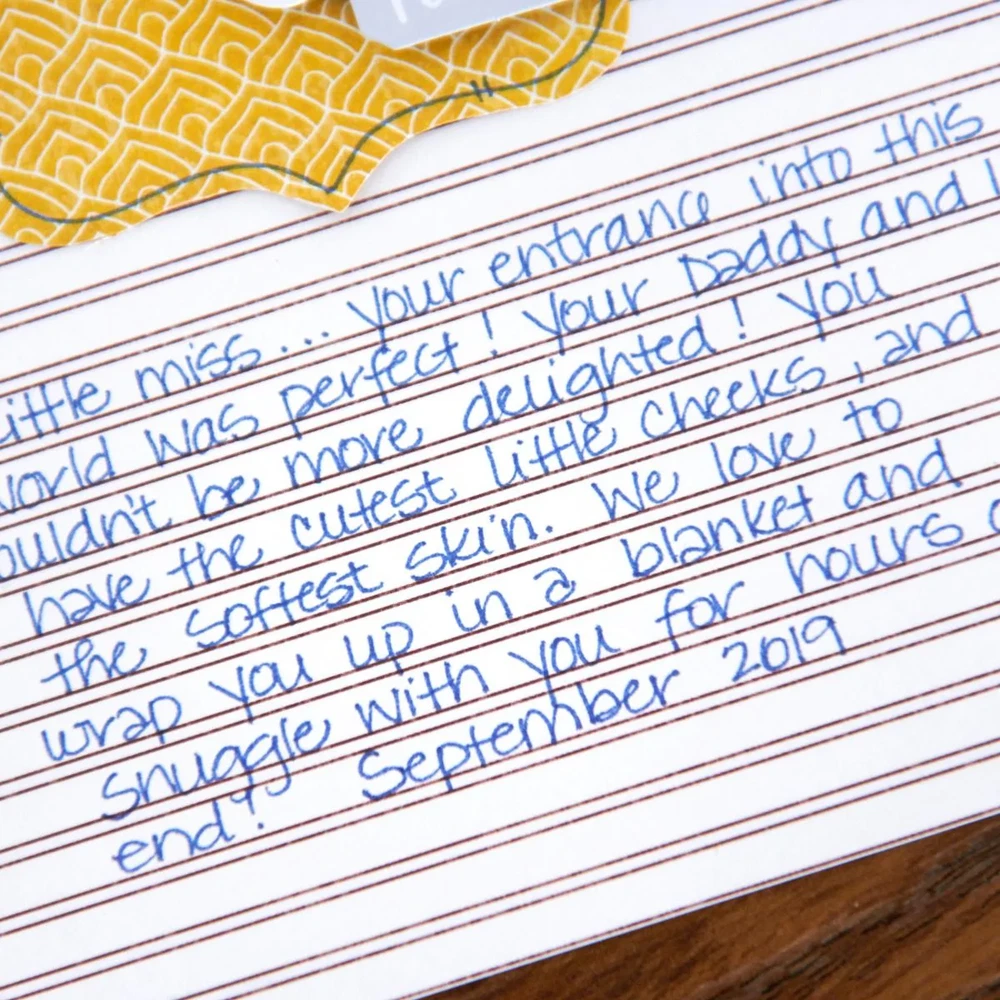 little miss... your entrance into this
world was perfect! your Daddy and I
couldn't be more delighted! you
have the cutest little cheeks, and
the softest skin. We love to
wrap you up in a blanket and
snuggle with you for hours
end! September 2019